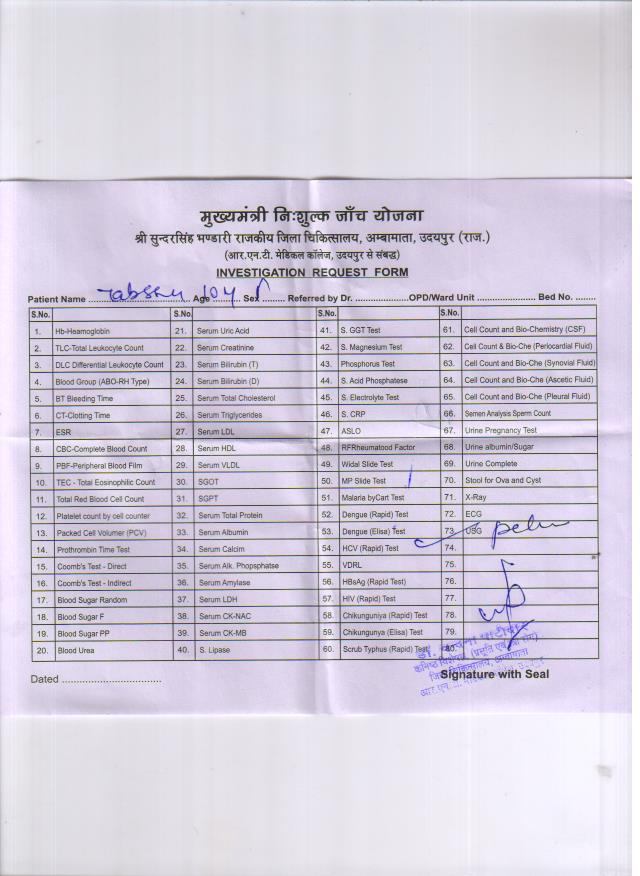 मुख्यमंत्री निःशुल्क जाँच योजना
श्री सुन्दरसिंह भण्डारी राजकीय जिला चिकित्सालय, अम्बामाता, उदयपुर (राज.)
(आर.एन.टी. मेडिकल कॉलेज, उदयपुर से संबद्ध)
INVESTIGATION REQUEST FORM
Patient Name ........ Age ........ Sex ........ Referred by Dr. ........ OPD/Ward Unit ........ Bed No. ........
S.No. S.No. S.No. S.No.
1. Hb-Heamoglobin 21. Serum Uric Acid 41. S. GGT Test 61. Cell Count and Bio-Chemistry (CSF)
2. TLC-Total Leukocyte Count 22. Serum Creatinine 42. S. Magnesium Test 62. Cell Count & Bio-Che (Periocardial Fluid)
3. DLC Differential Leukocyte Count 23. Serum Bilirubin (T) 43. Phosphorus Test 63. Cell Count and Bio-Che (Synovial Fluid)
4. Blood Group (ABO-RH Type) 24. Serum Bilirubin (D) 44. S. Acid Phosphatese 64. Cell Count and Bio-Che (Ascetic Fluid)
5. BT Bleeding Time 25. Serum Total Cholesterol 45. S. Electrolyte Test 65. Cell Count and Bio-Che (Pleural Fluid)
6. CT-Clotting Time 26. Serum Triglycerides 46. S. CRP 66. Semen Analysis Sperm Count
7. ESR 27. Serum LDL 47. ASLO 67. Urine Pregnancy Test
8. CBC-Complete Blood Count 28. Serum HDL 48. RFRheumatood Factor 68. Urine albumin/Sugar
9. PBF-Peripheral Blood Film 29. Serum VLDL 49. Widal Slide Test 69. Urine Complete
10. TEC - Total Eosinophilic Count 30. SGOT 50. MP Slide Test 70. Stool for Ova and Cyst
11. Total Red Blood Cell Count 31. SGPT 51. Malaria byCart Test 71. X-Ray
12. Platelet count by cell counter 32. Serum Total Protein 52. Dengue (Rapid) Test 72. ECG
13. Packed Cell Volumer (PCV) 33. Serum Albumin 53. Dengue (Elisa) Test 73. USG
14. Prothrombin Time Test 34. Serum Calcim 54. HCV (Rapid) Test 74.
15. Coomb's Test - Direct 35. Serum Alk. Phopsphatse 55. VDRL 75.
16. Coomb's Test - Indirect 36. Serum Amylase 56. HBsAg (Rapid) Test 76.
17. Blood Sugar Random 37. Serum LDH 57. HIV (Rapid) Test 77.
18. Blood Sugar F 38. Serum CK-NAC 58. Chikunguniya (Rapid) Test 78.
19. Blood Sugar PP 39. Serum CK-MB 59. Chikungunya (Elisa) Test 79.
20. Blood Urea 40. S. Lipase 60. Scrub Typhus (Rapid) Test 80.
Dated ........ Signature with Seal